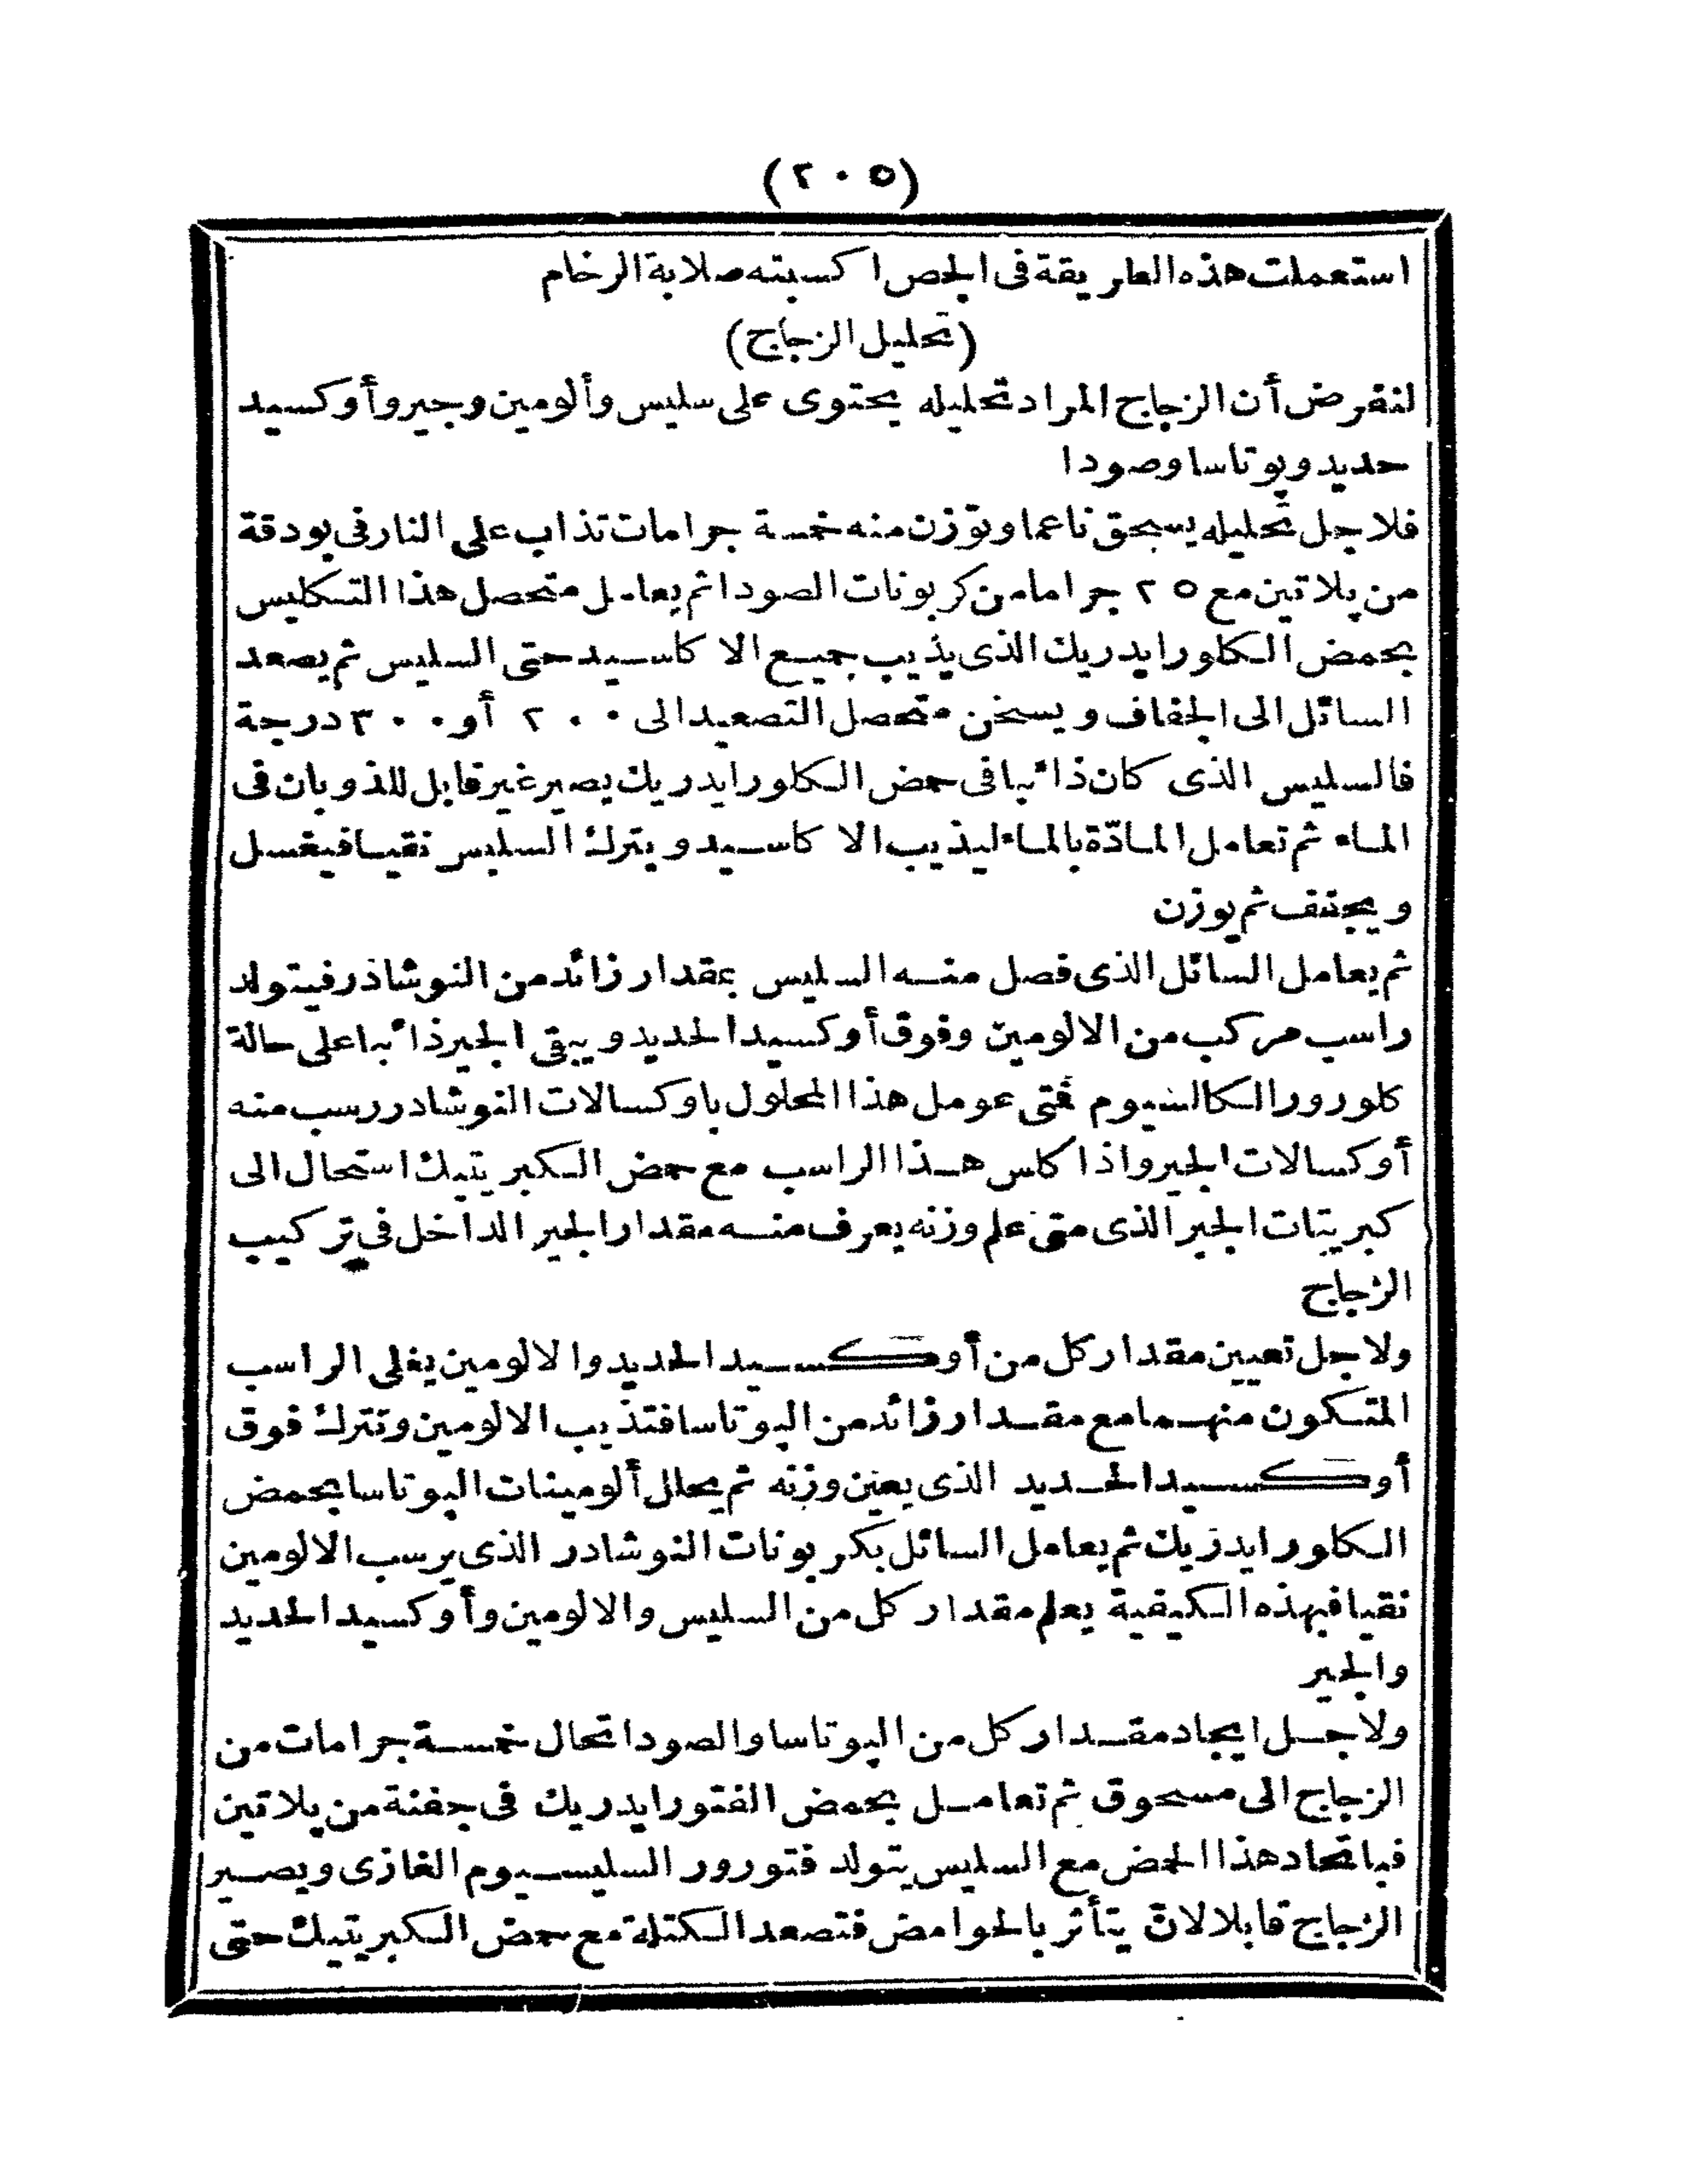 (٢٠٥)
استعملت هذه الطريقة فى الجص اكسبته صلابة الرخام
(تحليل الزجاج)
لنفرض أن الزجاج المراد تحليله يحتوى على سليس وألومين وجير وأوكسيد
حديد وپوتاسا وصودا
فلاجل تحليله يسحق ناعما وتوزن منه خمسة جرامات تذاب على النار فى بودقة
من پلاتين مع ٢٥ جراما من كربونات الصودا ثم يعامل متحصل هذا التكليس
بحمض الكلورايدريك الذى يذيب جميع الاكاسيد حتى السليس ثم يصعد
السائل الى الجفاف ويسخن متحصل التصعيد الى ٢٠٠ أو ٣٠٠ درجة
فالسليس الذى كان ذائبا فى حمض الكلورايدريك يصير غير قابل للذوبان فى
الماء ثم تعامل المادّة بالماء ليذيب الاكاسيد ويترك السليس نقيا فيغسل
ويجفف ثم يوزن
ثم يعامل السائل الذى فصل منه السليس بمقدار زائد من النوشاذر فيتولد
راسب مركب من الالومين وفوق أوكسيد الحديد ويبقى الجير ذائبا على حالة
كلورور الكالسيوم فمتى عومل هذا المحلول باوكسالات النوشادر رسب منه
أوكسالات الجير واذا كاس هذا الراسب مع حمض الكبريتيك استحال الى
كبريتات الجير الذى متى علم وزنه يعرف منه مقدار الجير الداخل فى تركيب
الزجاج
ولاجل تعيين مقدار كل من أوكسيد الحديد والالومين يغلى الراسب
المتكون منهما مع مقدار زائد من الپوتاسا فتذيب الالومين وتترك فوق
أوكسيد الحديد الذى يعين وزنه ثم يحلل ألومينات الپوتاسا بحمض
الكلورايدريك ثم يعامل السائل بكربونات النوشادر الذى يرسب الالومين
نقيا فبهذه الكيفية يعلم مقدار كل من السليس والالومين وأوكسيد الحديد
والجير
ولاجل ايجاد مقدار كل من الپوتاسا والصودا تحال خمسة جرامات من
الزجاج الى مسحوق ثم تعامل بحمض الفتورايدريك فى جفنة من پلاتين
فباتحاد هذا الحمض مع السليس يتولد فتورور السليسيوم الغازى ويصير
الزجاج قابلا لان يتأثر بالحوامض فتصعد الكتلة مع حمض الكبريتيك حتى